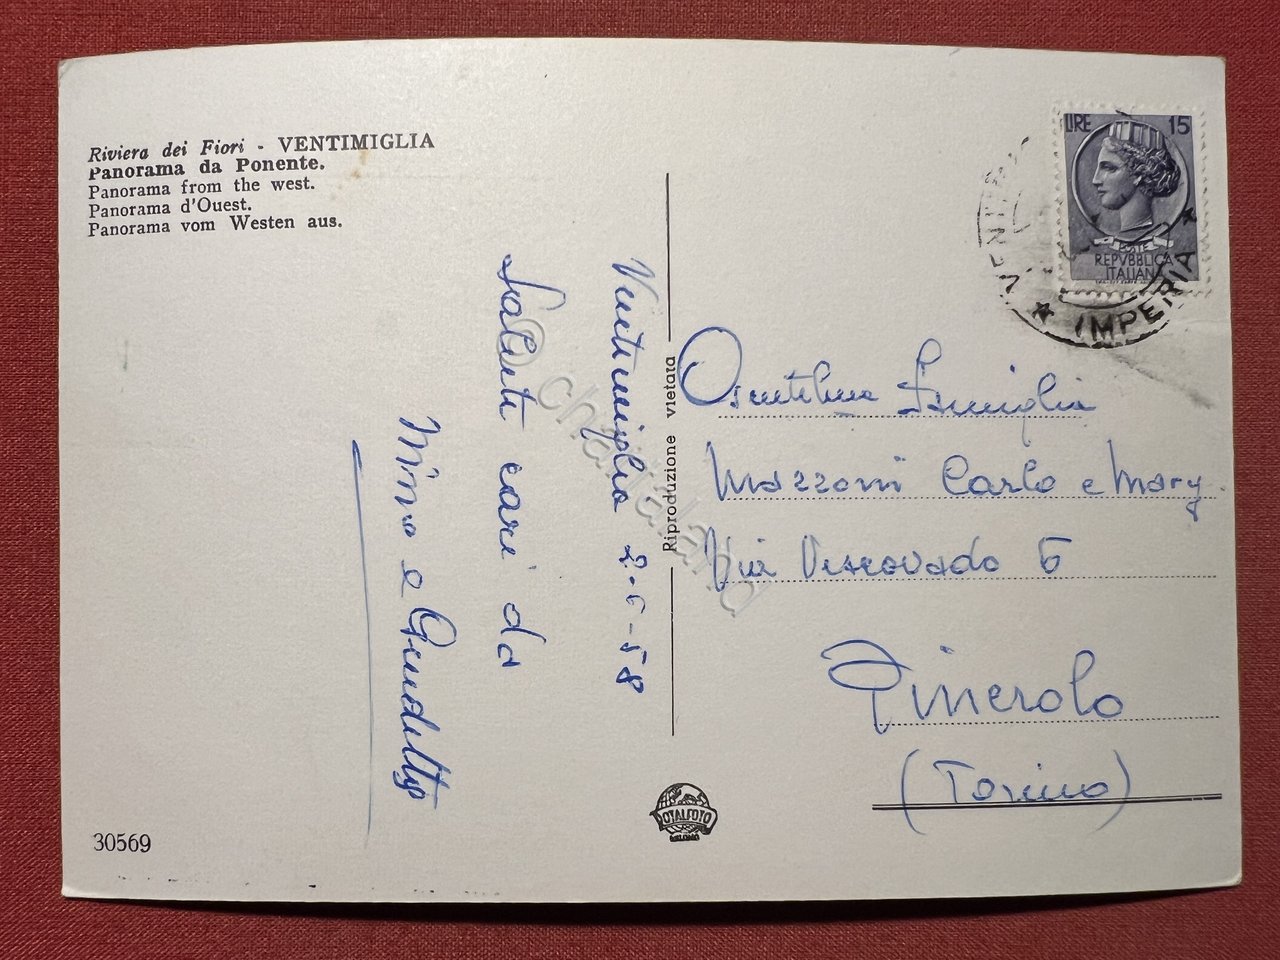 Riviera dei Fiori - VENTIMIGLIA
Panorama da Ponente.
Panorama from the west.
Panorama d'Ouest.
Panorama vom Westen aus.
Ventimiglia 2-6-58
Saluti cari da
Nino e
30569
Riproduzione vietata
LIRE 15
POSTE
REPVBBLICA
ITALIANA
IMPERIA
Famiglia
Mazzoni Carlo e Mary
Via Vescovado 6
Pinerolo
(Torino)